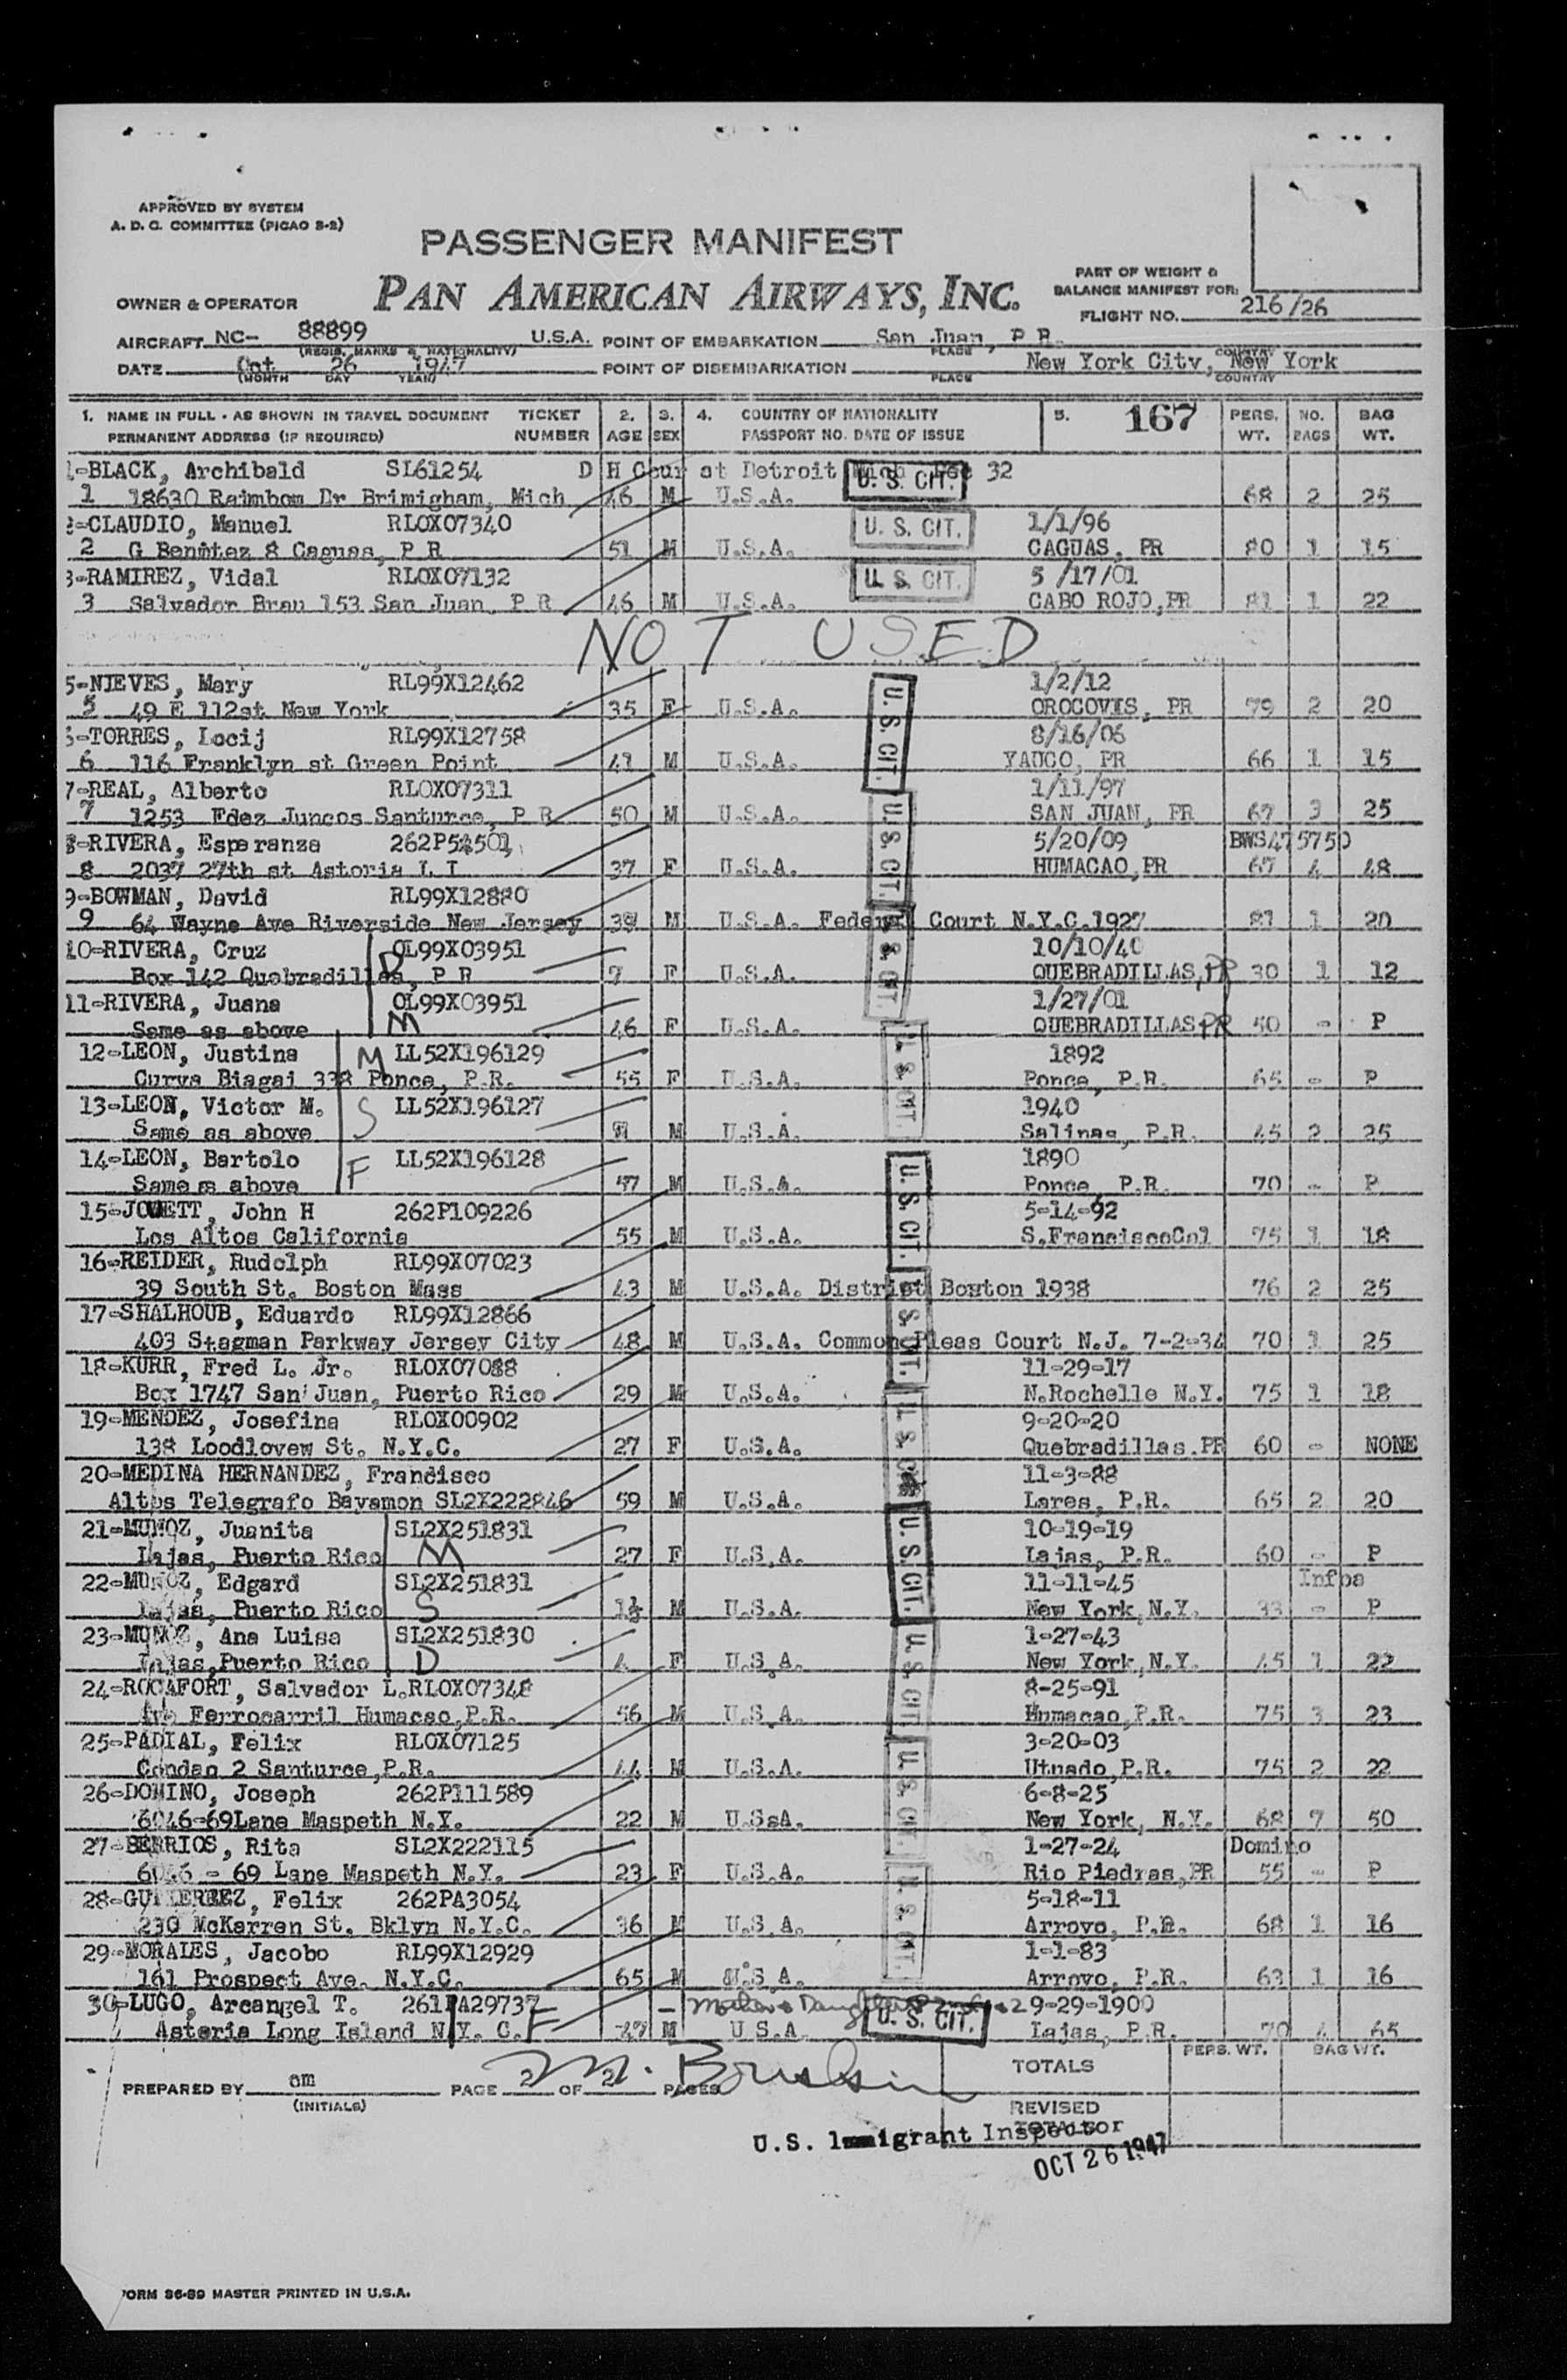 APPROVED BY SYSTEM
A. D. C. COMMITTEE (PICAO 3-2)
PASSENGER MANIFEST
PAN AMERICAN AIRWAYS, INC.
OWNER & OPERATOR
PART OF WEIGHT &
BALANCE MANIFEST FOR:
FLIGHT NO. 216/26
AIRCRAFT NC- 88899 U.S.A. POINT OF EMBARKATION San Juan, P R
(REGIS. MARKS & NATIONALITY) PLACE COUNTRY
DATE Oct 26 1947 POINT OF DISEMBARKATION New York City, New York
(MONTH DAY YEAR) PLACE COUNTRY
1. NAME IN FULL - AS SHOWN IN TRAVEL DOCUMENT TICKET 2. 3. 4. COUNTRY OF NATIONALITY 5. 167 PERS. NO. BAG
PERMANENT ADDRESS (IF REQUIRED) NUMBER AGE SEX PASSPORT NO. DATE OF ISSUE WT. BAGS WT.
1-BLACK, Archibald SL61254 D H Cour at Detroit 32
1 18630 Raimbom Dr Brimigham, Mich 46 M U.S.A. U.S. CIT. 68 2 25
2-CLAUDIO, Manuel RLOX07340 U.S. CIT. 1/1/96
2 G Benitez 8 Caguas, P R 51 M U.S.A. CAGUAS, PR 80 1 15
3-RAMIREZ, Vidal RLOX07132 U.S. CIT. 5 /17/01
3 Salvador Brau 153 San Juan, P R 46 M U.S.A. CABO ROJO,PR 81 1 22
NOT USED
5-NIEVES, Mary RL99X12462 1/2/12
5 49 E 112st New York 35 F U.S.A. U.S. CIT. OROCOVIS, PR 79 2 20
6-TORRES, Locij RL99X12758 8/16/06
6 116 Franklyn st Green Point 41 M U.S.A. YAUCO, PR 66 1 15
7-REAL, Alberto RLOX07311 1/11/97
7 1253 Fdez Juncos Santurce, P R 50 M U.S.A. U.S. CIT. SAN JUAN, PR 67 3 25
8-RIVERA, Esperanza 5/20/09 BWS475750
8 2037 27th st Astoria L I 37 F U.S.A. HUMACAO,PR 67 4 48
9-BOWMAN, David RL99X12880
9 64 Wayne Ave Riverside New Jersey M U.S.A. Federal Court N.Y.C.1927 81 1 20
10-RIVERA, Cruz OL99X03951 10/10/40
Box 142 Quebradillas, P R D 7 F U.S.A. QUEBRADILLAS,PR 30 1 12
11-RIVERA, Juana OL99X03951 1/27/01
Same as above M 46 F U.S.A. QUEBRADILLAS PR 50 - P
12-LEON, Justina M LL52X196129 1892
Curva Biagai 338 Ponce, P.R. 55 F U.S.A. Ponce, P.R. 65 - P
13-LEON, Victor M. S LL52X196127 1940
Same as above M U.S.A. Salinas, P.R. 45 2 25
14-LEON, Bartolo F LL52X196128 1890
Same as above 57 M U.S.A. U.S. CIT. Ponce, P.R. 70 - P
15-JOWETT, John H 262P109226 5-14-92
Los Altos California 55 M U.S.A. S.FranciscoCal 75 1 18
16-REIDER, Rudolph RL99X07023
39 South St. Boston Mass 43 M U.S.A. District Boston 1938 76 2 25
17-SHALHOUB, Eduardo RL99X12866
403 Stagman Parkway Jersey City 48 M U.S.A. Common Pleas Court N.J. 7-2-34 70 1 25
18-KURR, Fred L. Jr. RLOX07088 11-29-17
Box 1747 San Juan, Puerto Rico 29 M U.S.A. N.Rochelle N.Y. 75 1 18
19-MENDEZ, Josefina RLOX00902 9-20-20
138 Loodlovew St. N.Y.C. 27 F U.S.A. Quebradillas.PR 60 - NONE
20-MEDINA HERNANDEZ, Francisco 11-3-88
Altos Telegrafo Bayamon SL2X222846 59 M U.S.A. Lares, P.R. 65 2 20
21-MUNOZ, Juanita SL2X251831 10-19-19
Lajas, Puerto Rico M 27 F U.S.A. U.S. CIT. Lajas, P.R. 60 - P
22-MUNOZ, Edgard SL2X251831 11-11-45 Infoa
Lajas, Puerto Rico S 1½ M U.S.A. New York,N.Y. 33 - P
23-MUNOZ, Ana Luisa SL2X251830 1-27-43
Lajas,Puerto Rico D 4 F U.S.A. U.S. CIT. New York,N.Y. 45 1 22
24-ROCAFORT, Salvador L.RLOX07348 8-25-91
Ferrocarril Humacao,P.R. 56 M U.S.A. Humacao,P.R. 75 3 23
25-PADIAL, Felix RLOX07125 3-20-03
Condao 2 Santurce,P.R. 44 M U.S.A. U.S. CIT. Utuado,P.R. 75 2 22
26-DOMINO, Joseph 262P111589 6-8-25
6046-69Lane Maspeth N.Y. 22 M U.SsA. New York, N.Y. 68 7 50
27-BERRIOS, Rita SL2X222115 1-27-24 Domino
6046 - 69 Lane Maspeth N.Y. 23 F U.S.A. Rio Piedras,PR 55 - P
28-GUTIERREZ, Felix 262PA3054 5-18-11
230 McKerren St. Bklyn N.Y.C. 36 M U.S.A. Arroyo, P.R. 68 1 16
29-MORALES, Jacobo RL99X12929 1-1-83
161 Prospect Ave. N.Y.C. 65 M U.S.A. Arroyo, P.R. 63 1 16
30-LUGO, Arcangel T. 261PA29737 9-29-1900
Astoria Long Island N.Y. C. F 47 M U S.A U.S. CIT. Lajas, P.R. 70 4 65
PREPARED BY am PAGE 2 OF 2 PAGES TOTALS PERS. WT. BAG WT.
(INITIALS)
REVISED
TOTALS
U.S. Immigrant Inspector
OCT 26 1947
FORM 36-89 MASTER PRINTED IN U.S.A.